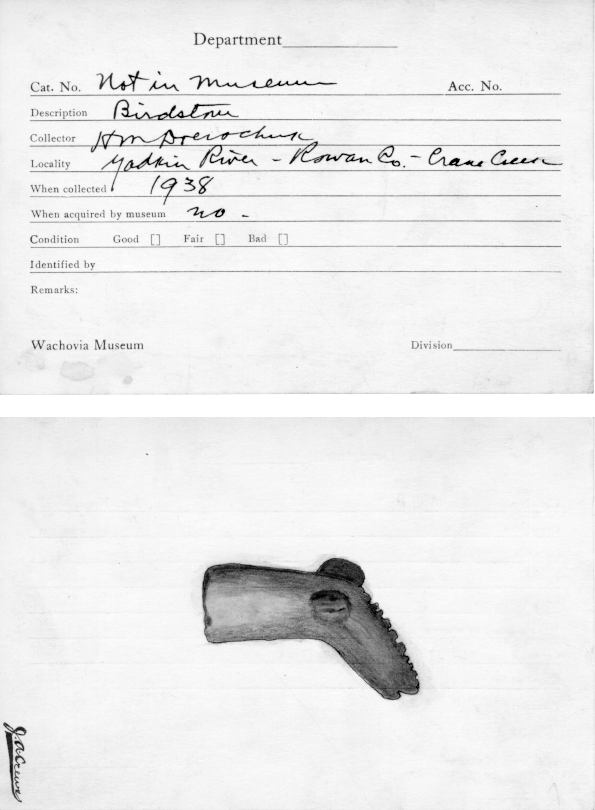 Department
Cat. No. Not in Museum Acc. No.
Description Birdstone
Collector H M Doerschuk
Locality Yadkin River - Rowan Co. - Crane Creek
When collected 1938
When acquired by museum no -
Condition Good [] Fair [] Bad []
Identified by
Remarks:
Wachovia Museum Division